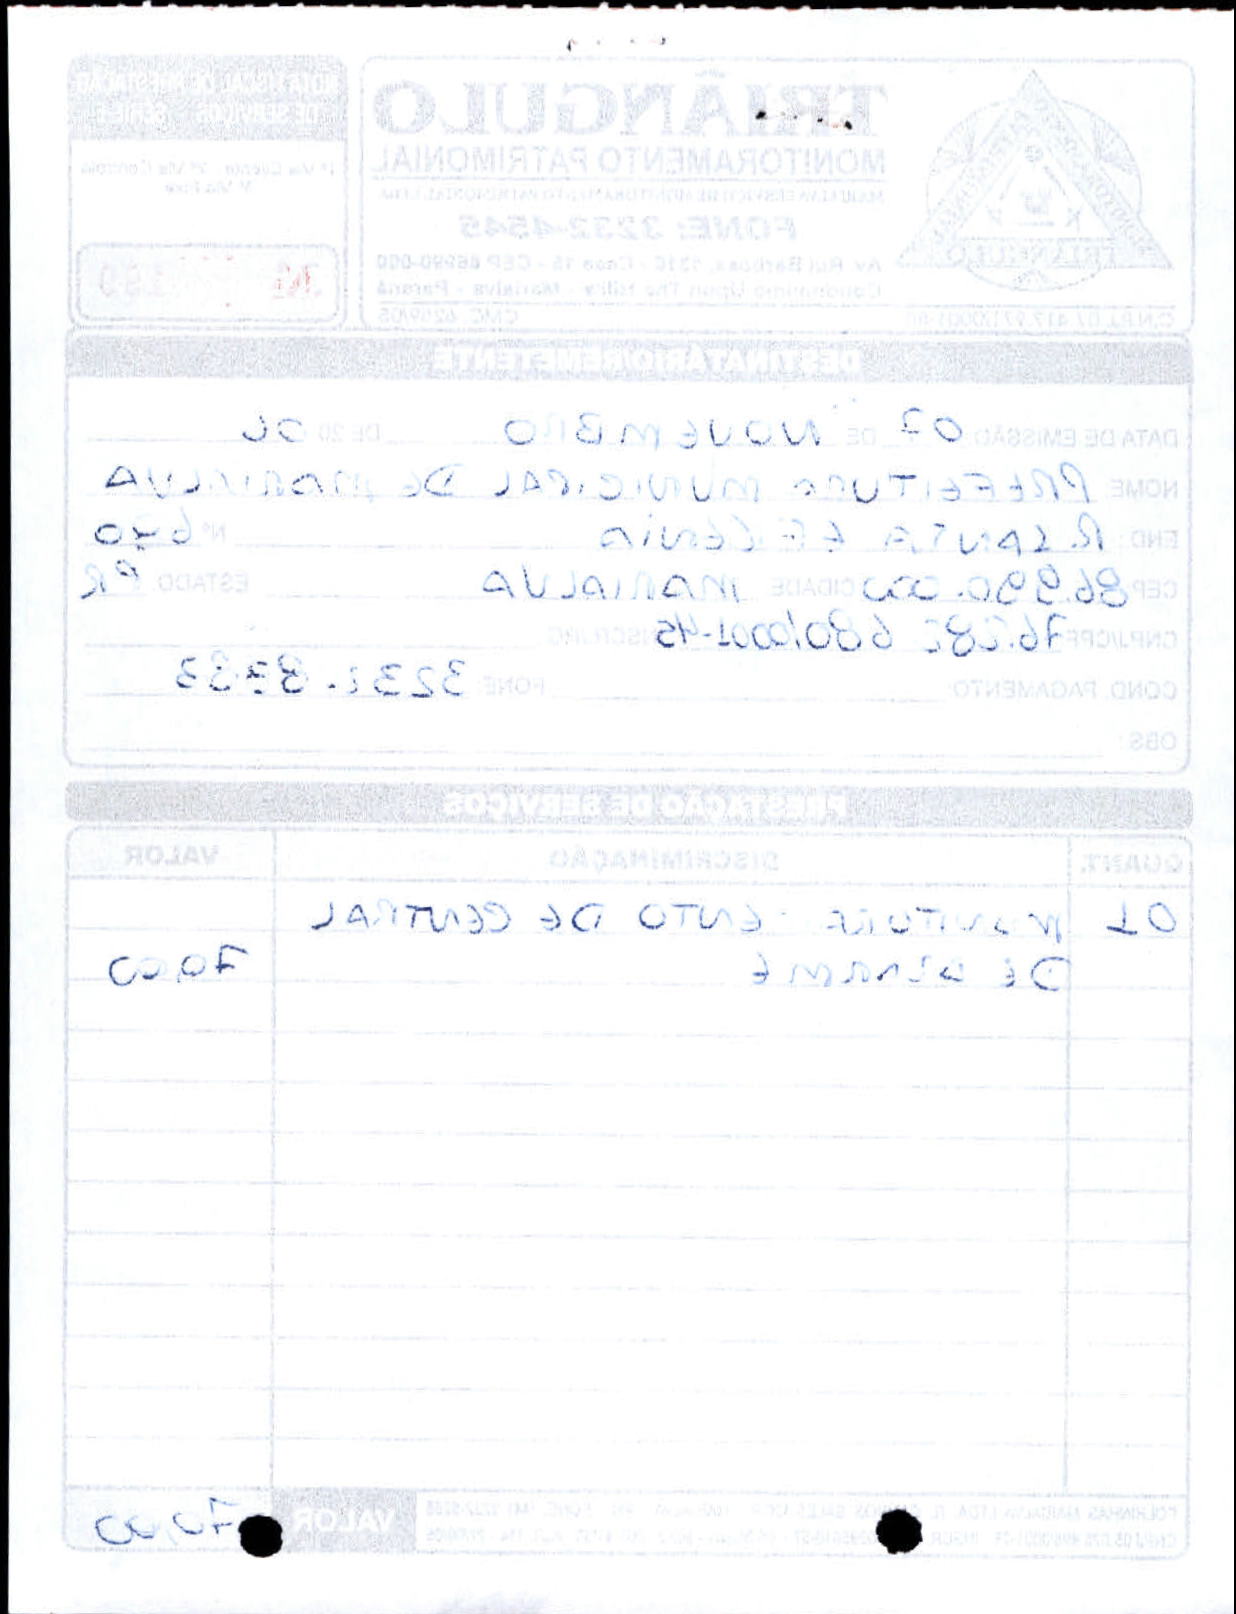 NOTA FISCAL DE PRESTAÇÃO
DE SERVIÇOS - SÉRIE F
1ª Via Cliente - 2ª Via Controle
3ª Via Fixa
Nº
TRIÂNGULO
MONITORAMENTO PATRIMONIAL
SERVIÇO DE MONITORAMENTO PATRIMONIAL LTDA.
FONE: 3232-4545
Av. Rui Barbosa, 1310 - Casa 15 - CEP 86990-000
Condomínio Upon The Hills - Marialva - Paraná
C.N.P.J. 07.417.971/0001- CMC. 6269/05
TRIÂNGULO
DESTINATÁRIO/REMETENTE
DATA DE EMISSÃO: 07 DE NOVEMBRO DE 20 06
NOME: PREFEITURA MUNICIPAL DE MARIALVA
END.: R. SANTA EFIGÊNIA Nº 680
CEP: 86.990.000 CIDADE MARIALVA ESTADO PR
CNPJ/CPF: 76.282.680/0001-45 INSCR./RG
COND. PAGAMENTO: FONE: 3232.8383
OBS.:
PRESTAÇÃO DE SERVIÇOS
QUANT. DISCRIMINAÇÃO VALOR
01 MONITORAMENTO DE CENTRAL
DE ALARME 70,00
VALOR 70,00